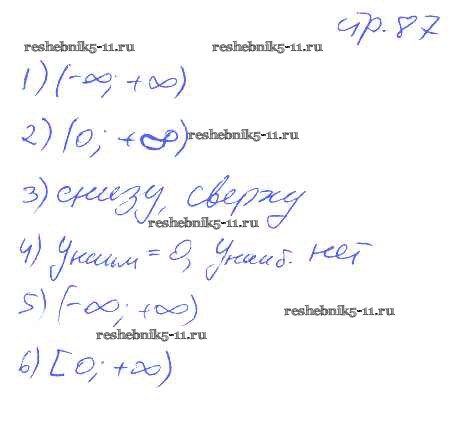 стр. 87
reshebnik5-11.ru reshebnik5-11.ru
1) (-∞; +∞)
2) (0; +∞) reshebnik5-11.ru
3) снизу, сверху
reshebnik5-11.ru
4) Унаим = 0, Унаиб. нет
5) (-∞; +∞)
reshebnik5-11.ru
reshebnik5-11.ru
6) [0; +∞)